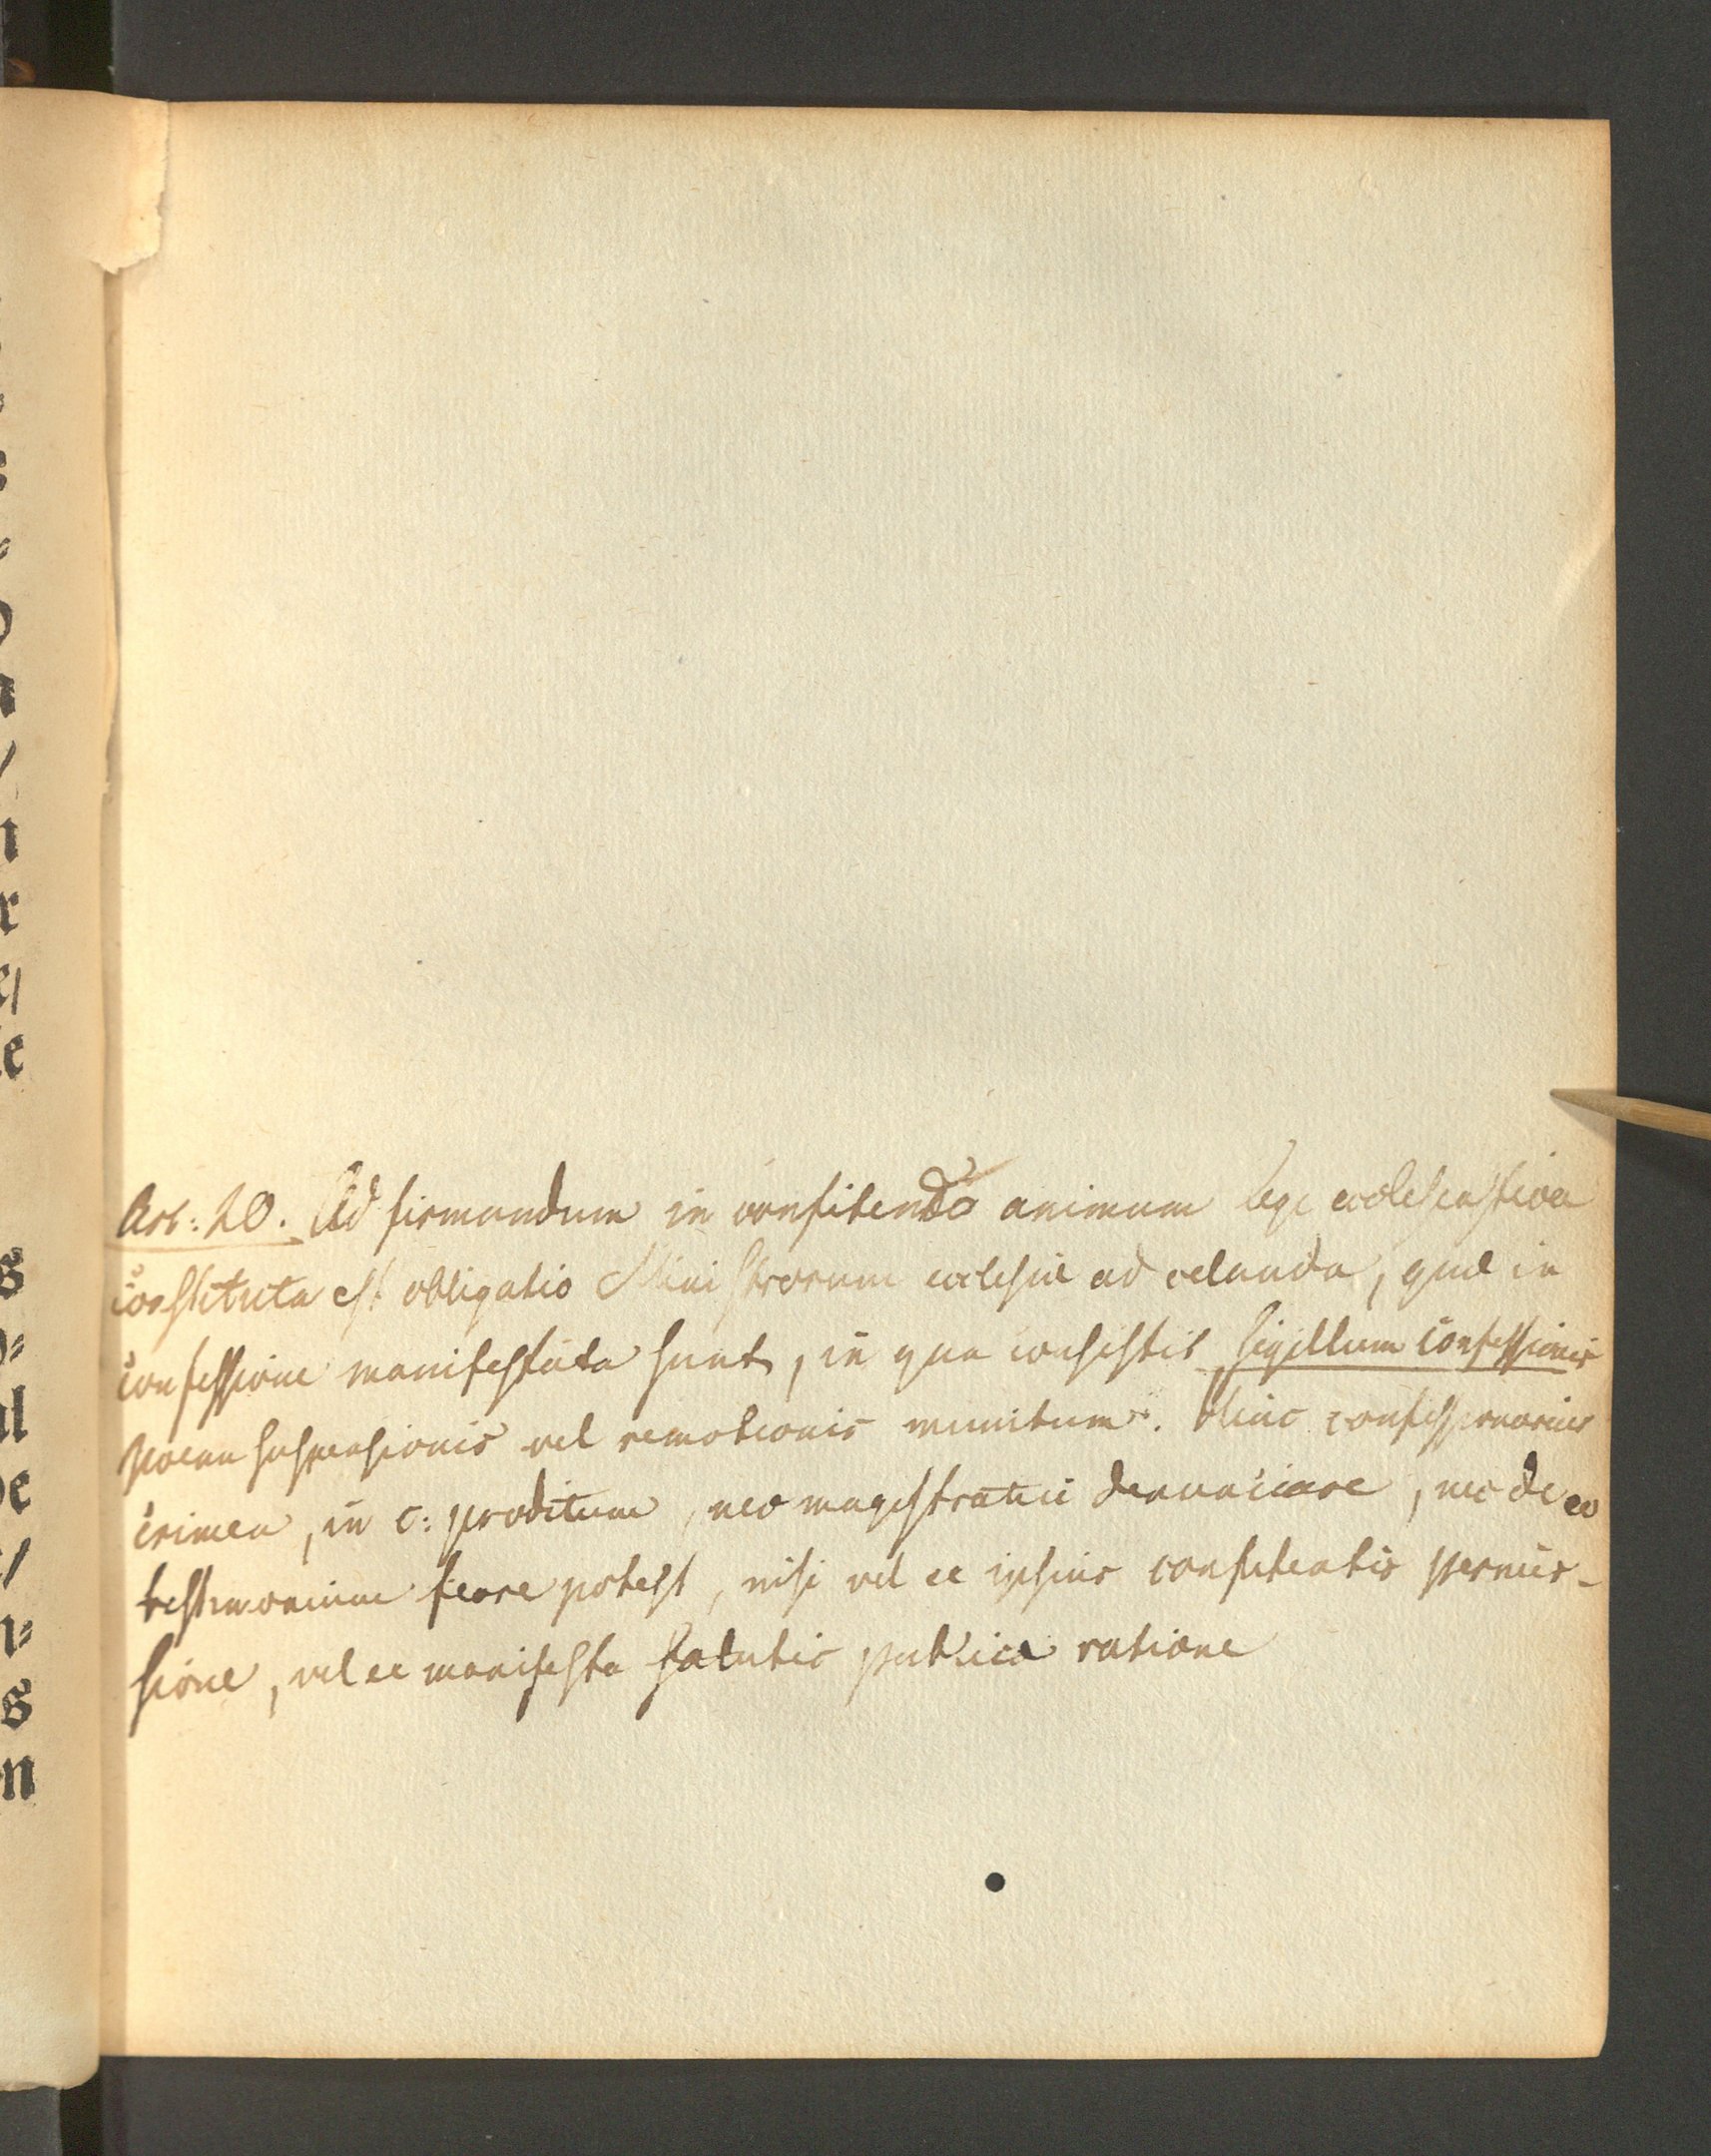 Art: 20. Ad firmandum in confitendo animum lege ecclesiastica
constituta est obligatio Ministrorum ecclesiæ ad celanda, quæ in
confessione manifestata sunt, in qua consistit sigillum confessionis
poena suspensionis vel remotionis munitum. Hinc confessionarius
crimen, in c: proditum, nec magistratui denunciare, nec de eo
testimonium ferre potest, nisi vel ex ipsius confitentis permis-
sione, vel ex manifesta salutis publica ratione